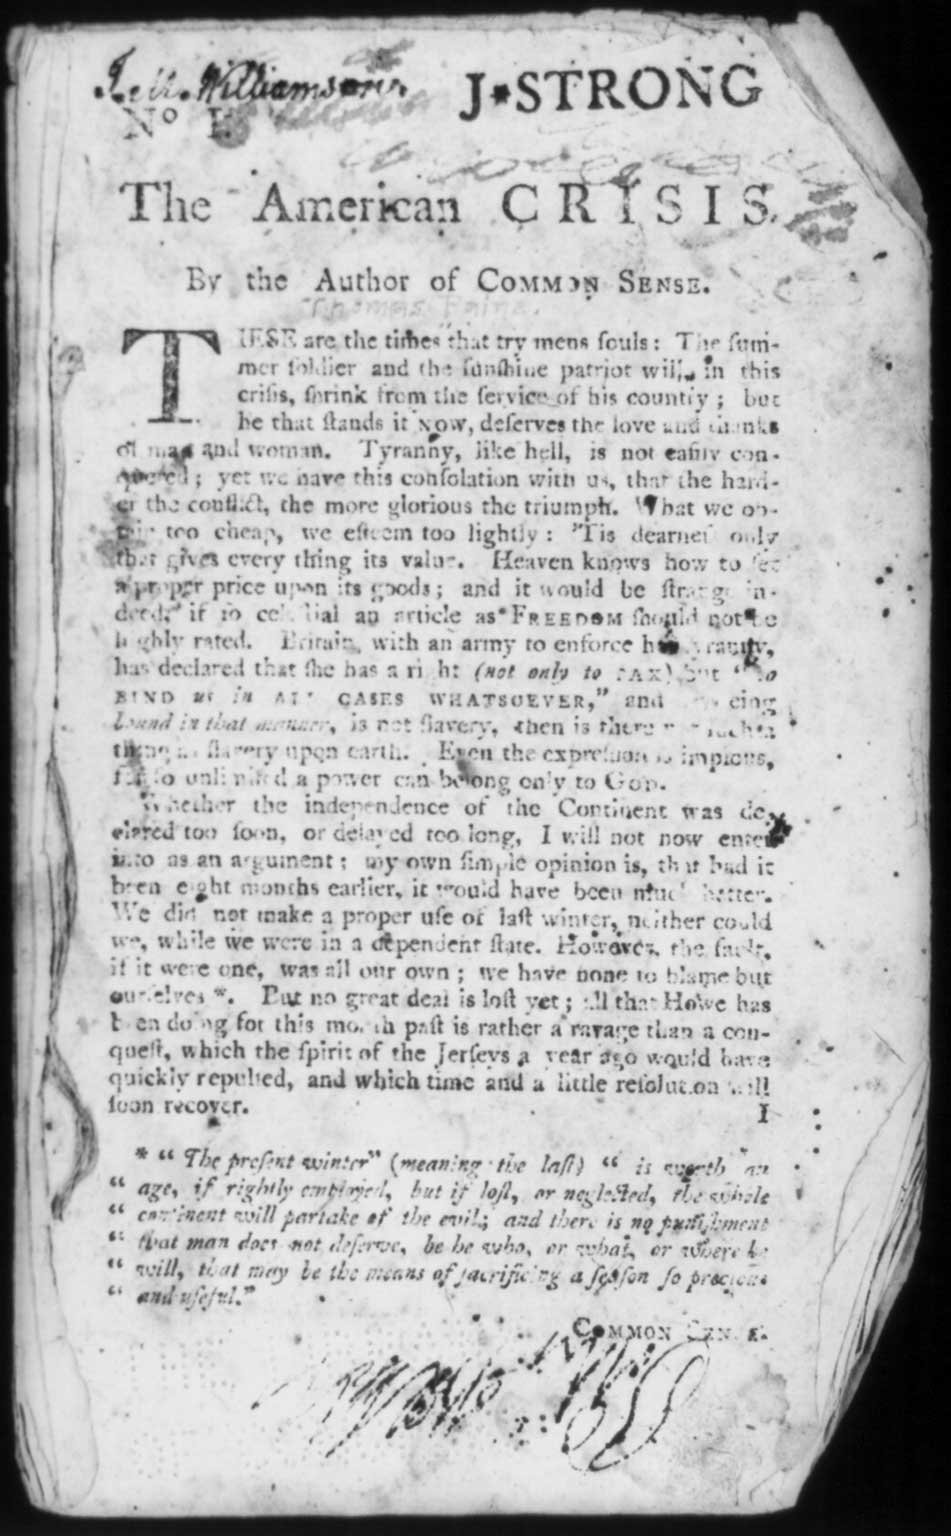 Williamson
J*STRONG
No I.
The American CRISIS.
By the Author of COMMON SENSE.
Thomas Paine.
THESE are the times that try mens ſouls: The ſum-
mer ſoldier and the ſunſhine patriot will, in this
criſis, ſhrink from the ſervice of his country; but
he that ſtands it NOW, deſerves the love and thanks
of man and woman. Tyranny, like hell, is not eaſily con-
quered; yet we have this conſolation with us, that the hard-
er the conflict, the more glorious the triumph. What we ob-
tain too cheap, we eſteem too lightly: 'Tis dearneſs only
that gives every thing its value. Heaven knows how to ſet
a proper price upon its goods; and it would be ſtrange in-
deed, if ſo celeſtial an article as FREEDOM ſhould not be
highly rated. Britain, with an army to enforce her tyranny,
has declared that ſhe has a right (not only to TAX) but "to
BIND us in ALL CASES WHATSOEVER," and if being
bound in that manner, is not ſlavery, then is there not ſuch a
thing as ſlavery upon earth. Even the expreſſion is impious,
for ſo unlimited a power can belong only to GOD.
Whether the independence of the Continent was de-
clared too ſoon, or delayed too long, I will not now enter
into as an argument; my own ſimple opinion is, that had it
been eight months earlier, it would have been much better.
We did not make a proper uſe of laſt winter, neither could
we, while we were in a dependent ſtate. However, the fault,
if it were one, was all our own; we have none to blame but
ourſelves *. But no great deal is loſt yet; all that Howe has
been doing for this month paſt is rather a ravage than a con-
queſt, which the ſpirit of the Jerſeys a year ago would have
quickly repulſed, and which time and a little reſolution will
ſoon recover.
I
* " The preſent winter" (meaning the laſt) " is worth an
" age, if rightly employed, but if loſt, or neglected, the whole
" continent will partake of the evil; and there is no puniſhment
" that man does not deſerve, be he who, or what, or where he
" will, that may be the means of ſacrificing a ſeaſon ſo precious
" and uſeful."
COMMON SENSE.